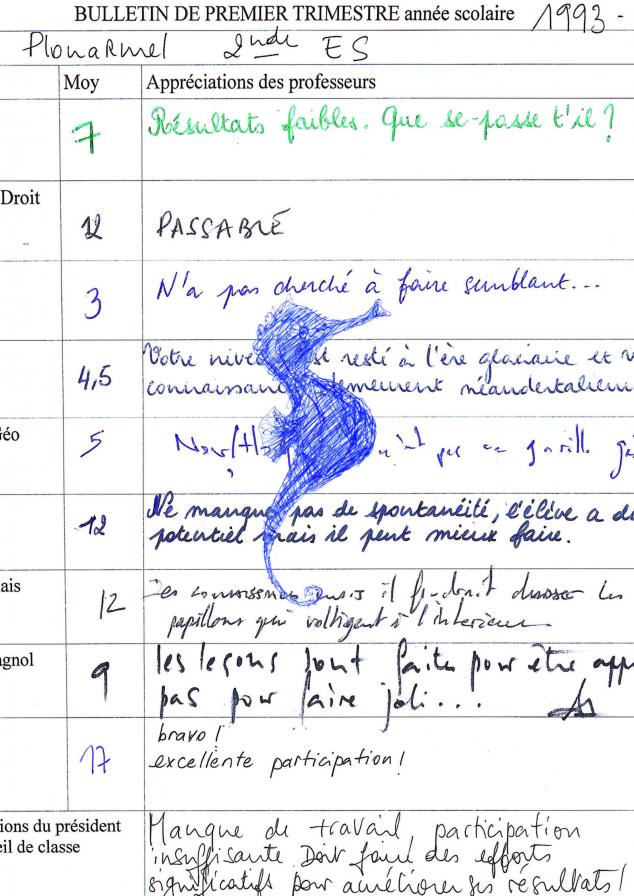 BULLETIN DE PREMIER TRIMESTRE année scolaire 1993 -
Plouarmel 2nde ES
Moy Appréciations des professeurs
7 Résultats faibles. Que se-passe t'il ?
Droit
12 PASSABLE
3 N'a pas cherché à faire semblant...
4,5 Votre est resté à l'ère glaciaire et
néandertalien
5 pas
12 Ne manque pas de spontanéité, l'élève a
potentiel mais il peut mieux faire.
12 il faudrait chasser les
papillons qui voltigent à l'intérieur
9 les leçons sont faites pour être
pas pour faire joli...
17 bravo !
excellente participation !
du président Manque de travail, participation
de classe insuffisante Doit faire des efforts
significatifs pour améliorer ses résultats !